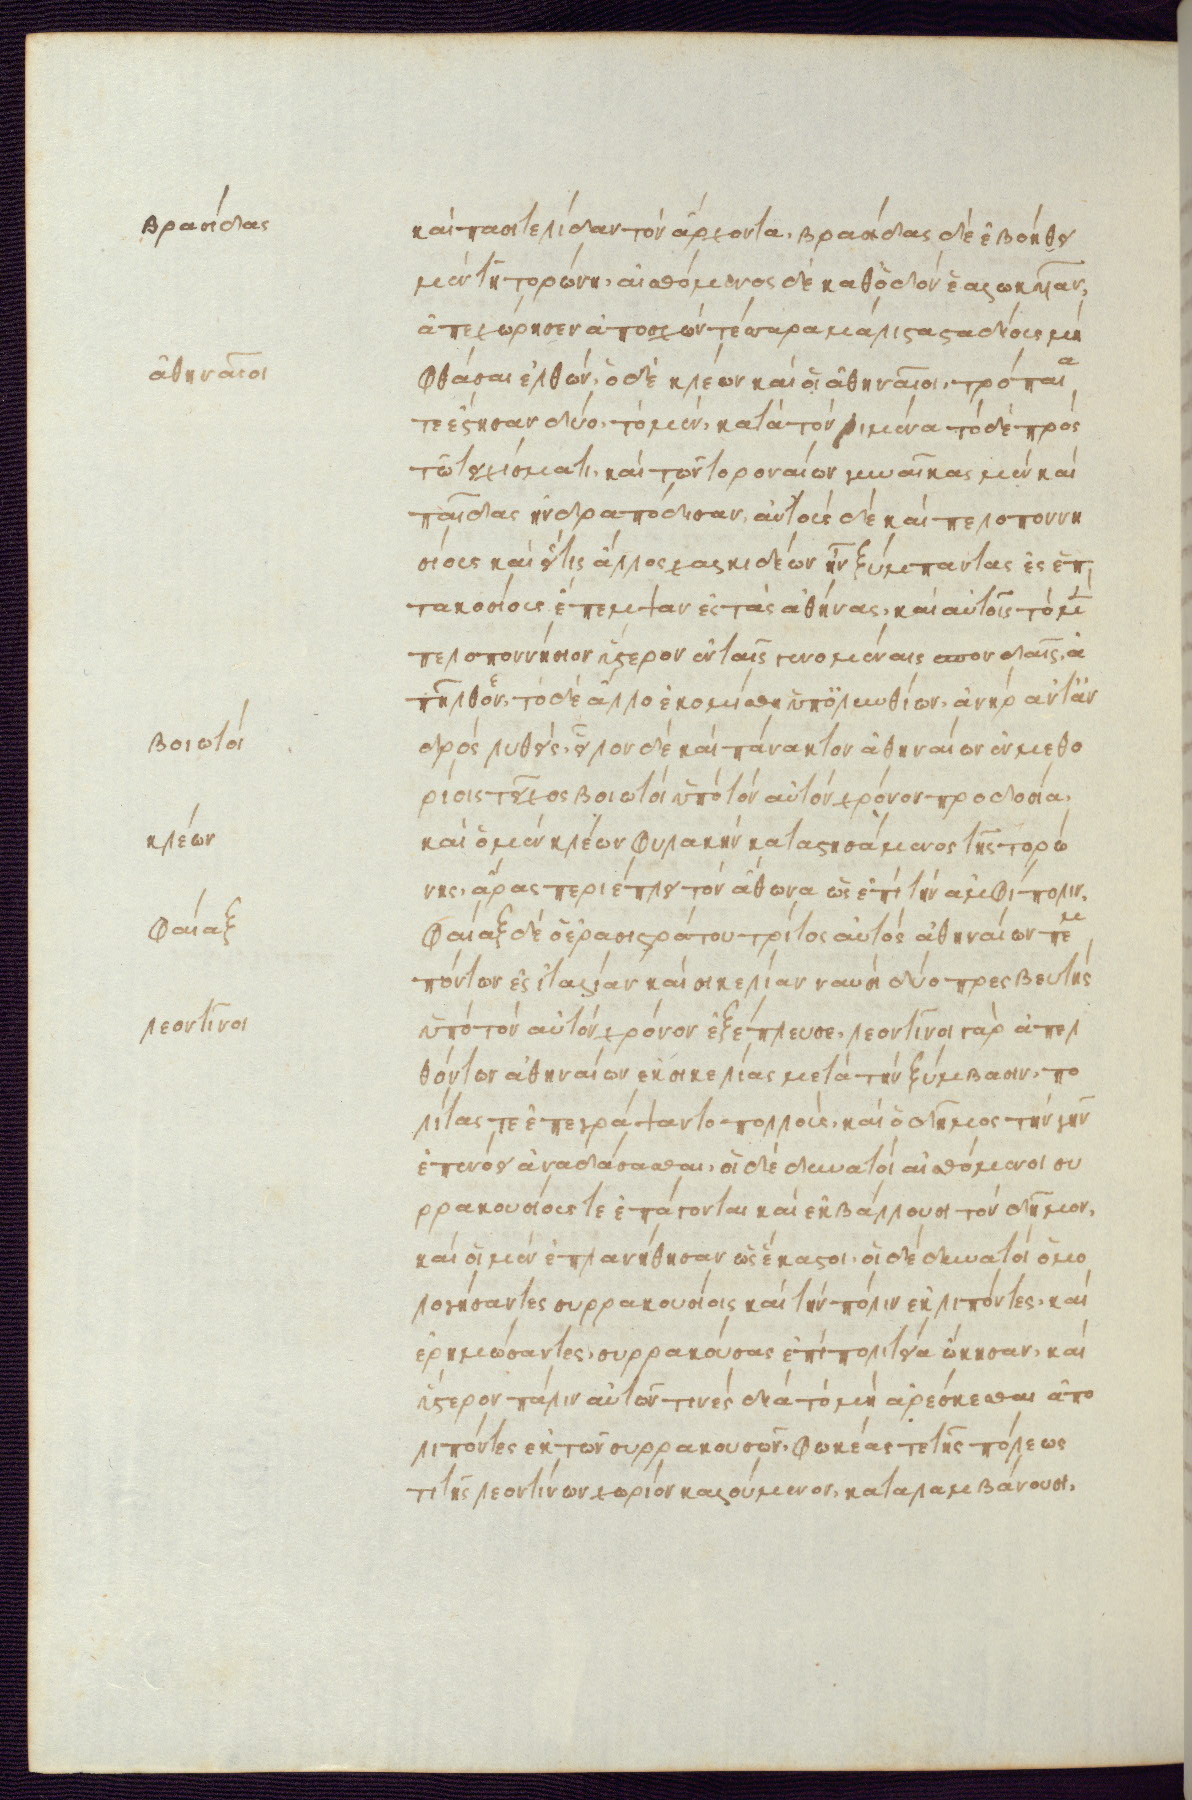 Βρασίδας
καὶ πασιτελίδαν τὸν ἄρχοντα. βρασίδας δὲ ἐβοήθει
μὲν τῆ τορώνη. αἰσθόμενος δὲ καθ' ὁδὸν ἑαλωκυῖαν,
ἀπεχώρησεν ἀποσχὼν τεσσαράκοντα μάλιστα σταδίους μὴ
ἀθηναῖοι
φθάσαι ἐλθών. ὁ δὲ κλέων καὶ οἱ ἀθηναῖοι, τροπαῖα
τε ἔστησαν δύο. τὸ μὲν, κατὰ τὸν λιμένα τὸ δὲ πρὸς
τῶ τειχίσματι. καὶ τῶν τοροναίων γυναῖκας μὲν καὶ
παῖδας ἠνδραπόδισαν. αὐτοὺς δὲ καὶ πελοποννη
σίους καὶ εἴτις ἄλλος χαλκιδέων ἦν ξύμπαντας ἐς ἑπ
τακοσίους ἔπεμψαν ἐς τὰς ἀθήνας. καὶ αὐτοῖς τὸ μὲν
πελοποννήσιον ὕστερον ἐν ταῖς γενομέναις σπονδαῖς ἀ
πῆλθεν. τὸ δὲ ἄλλο ἐκομίσθη ὑπ' ὀλυνθίων. ἀνὴρ ἀντ' ἀν
Βοιωτοὶ
δρὸς λυθείς. εἷλον δὲ καὶ πάνακτον ἀθηναίων ἐν μεθο
ρίοις τεῖχος βοιωτοὶ ὑπὸ τὸν αὐτὸν χρόνον προδοσία.
κλέων
καὶ ὁ μὲν κλέων φυλακὴν καταστησάμενος τῆς τορώ
νης, ἄρας περιέπλει τὸν ἄθωνα ὡς ἐπὶ τὴν ἀμφίπολιν.
Φαίαξ
Φαίαξ δὲ ὁ ἐρασιστράτου τρίτος αὐτὸς ἀθηναίων πεμ
πόντων ἐς ἰταλίαν καὶ σικελίαν ναυσὶ δύο πρεσβευτὴς
λεοντῖνοι
ὑπὸ τὸν αὐτὸν χρόνον ἐξέπλευσε. λεοντῖνοι γὰρ ἀπελ
θόντων ἀθηναίων ἐκ σικελίας μετὰ τὴν ξύμβασιν. πο
λίτας τε ἐπεγράψαντο πολλοὺς. καὶ ὁ δῆμος τὴν γῆν
ἐπενόει ἀναδάσασθαι. οἱ δὲ δυνατοὶ αἰσθόμενοι συ
ρρακουσίους τε ἐπάγονται καὶ ἐκβάλλουσι τὸν δῆμον.
καὶ οἱ μὲν ἐπλανήθησαν ὡς ἕκαστοι. οἱ δὲ δυνατοὶ ὁμο
λογήσαντες συρρακουσίοις καὶ τὴν πόλιν ἐκλιπόντες. καὶ
ἐρημώσαντες, συρρακούσας ἐπὶ πολιτεία ᾤκησαν. καὶ
ὕστερον πάλιν αὐτῶν τινὲς διὰ τὸ μὴ ἀρέσκεσθαι ἀπο
λιπόντες ἐκ τῶν συρρακουσῶν. Φωκέας τε τῆς πόλεως
τι τῆς λεοντίνων χωρίον καλούμενον. καταλαμβάνουσι.